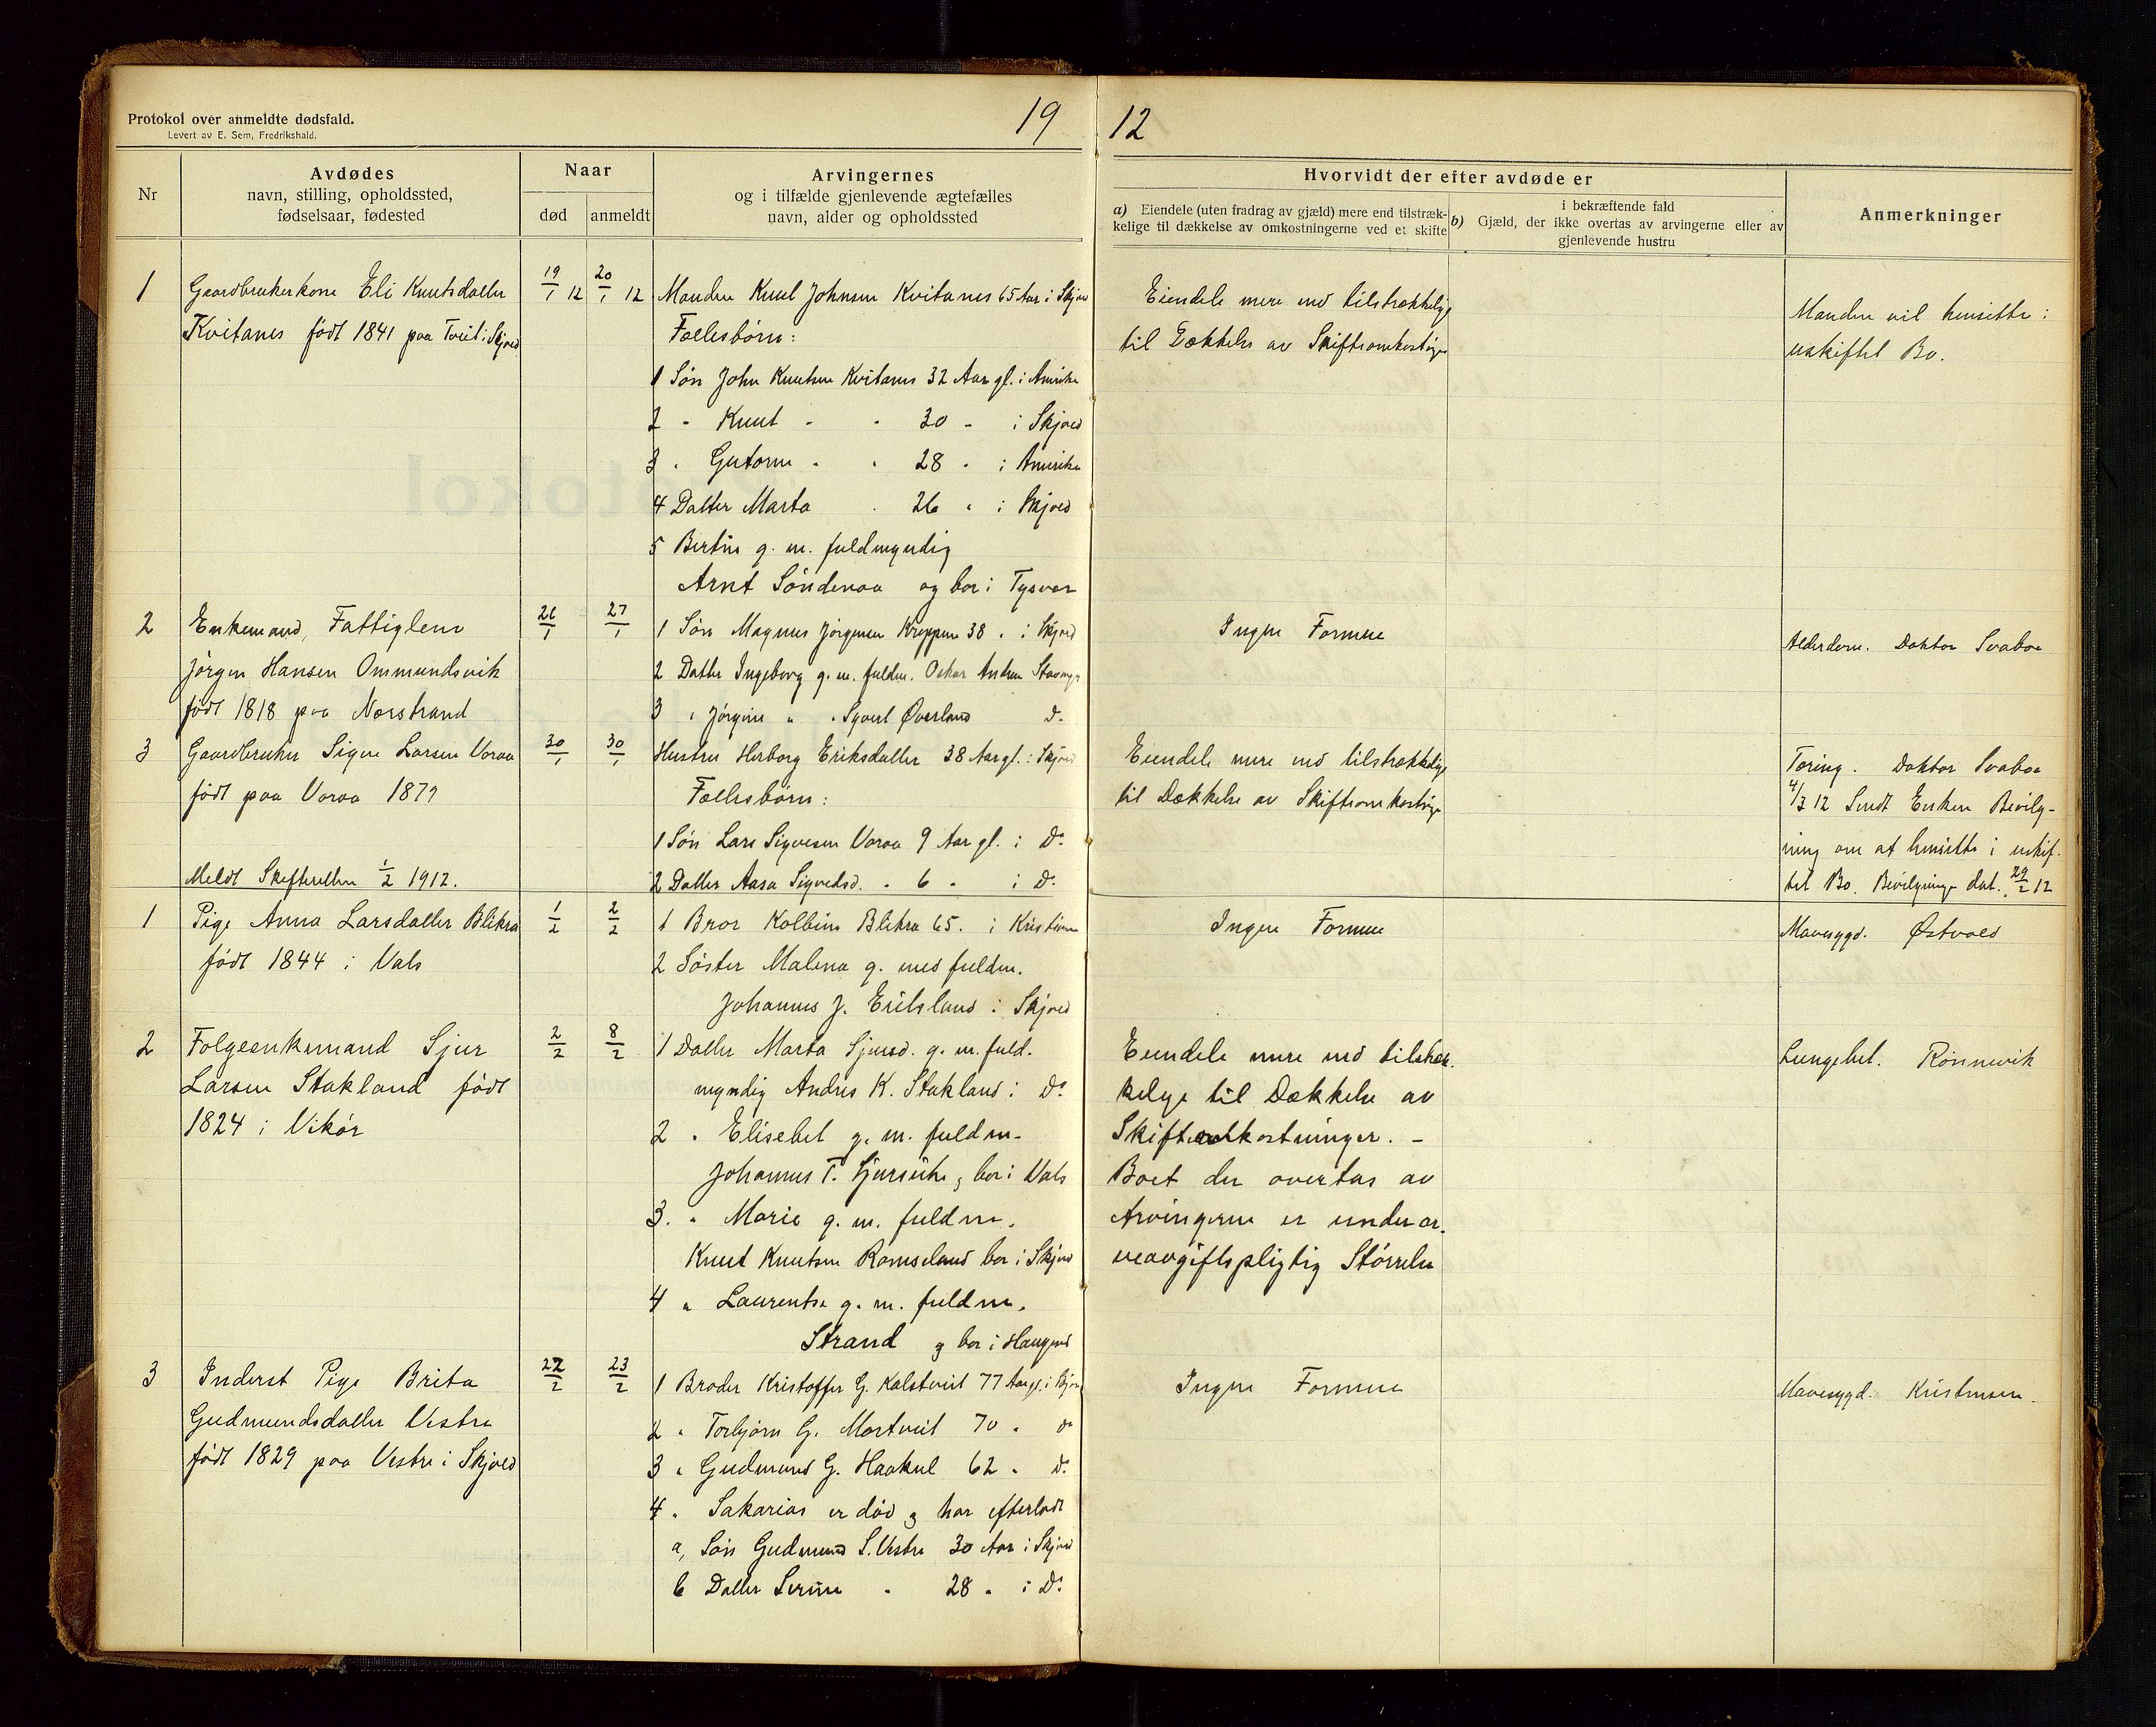 Protokol over anmeldte dødsfald.
Levert av E. Sem, Fredrikshald.
19 12
Nr
Avdødes
navn, stilling, opholdssted,
fødselsaar, fødested
Naar
død anmeldt
Arvingernes
og i tilfælde gjenlevende ægtefælles
navn, alder og opholdssted
Hvorvidt der efter avdøde er
a) Eiendele (uten fradrag av gjæld) mere end tilstræk-
kelige til dækkelse av omkostningerne ved et skifte
i bekræftende fald
b) Gjæld, der ikke overtas av arvingerne eller av
gjenlevende hustru
Anmerkninger
1 Gaardbrukerkone Eli Knutsdatter
Kvitanes født 1841 paa Tveit i Skjold
19/1 12 20/1 12
Manden Knut Johnsen Kvitanes 65 Aar i Skjold
Fællesbørn:
1 Søn John Knutsen Kvitanes 32 Aar gl. i Amerika
2 " Knut " " 30 " i Skjold
3 " Gutorm " " 28 " i Amerika
4 Datter Marta " 26 " i Skjold
5 Bertine g. m. fuldmyndig
Arnt Søndenaa og bor i Tysvær
Eiendele mere end tilstrækkelige
til Dækkelse av Skifteomkostninger
Manden vil hensitte i
uskiftet Bo.
2 Enkemand, Fattiglem
Jørgen Hansen Ommundsvik
født 1818 paa Nærstrand
26/1 27/1
1 Søn Magnus Jørgensen 38 " i Skjold
2 Datter Ingeborg g. m. fuldm. Oskar Stavanger
3 " Jørgine " " Sjvert Øverland do.
Ingen Formue
Alderdom. Doktor Svaboe
3 Gaardbruker Sigve Larsen Voraa
født paa Voraa 1879
Meldt Skifteretten 1/2 1912.
30/1 30/1
Hustru Herborg Eriksdatter 38 Aar gl. i Skjold
Fællesbørn:
1 Søn Lars Sigvesen Voraa 9 Aar gl. i Do
2 Datter Aasa Sigvedsd. " 6 " i Do.
Eiendele mere end tilstrækkelige
til Dækkelse av Skifteomkostninger
Tæring. Doktor Svaboe
4/3 12 Sendt Enken Bevilg-
ning om at hensitte i uskif-
tet Bo. Bevilgninge dat. 29/2 12
1 Pige Anna Larsdatter Blikra
født 1844 i Vats
1/2 2/2
1 Bror Kolbein Blikra 65. i Kristiania
2 Søster Malena g. med fuldm.
Johannes J. Eritsland i Skjold
Ingen Formue
Mavesygd. Østvold
2 Folgeenkemand Sjur
Larsen Stakland født
1824 i Vikør
2/2 8/2
1 Datter Marta Sjursd. g. m. fuld-
myndig Andres K. Stakland i Do.
2 " Elisebet g. m. fuldm.
Johannes T. og bor i Vats
3. " Marie g. m. fuldm.
Knut Knutsen Ramseland bor i Skjold
4 " Laurentse g. m. fuldm.
Strand og bor i Haugesund
Eiendele mere end tilstræk-
kelige til Dækkelse av
Skifteomkostninger. -
Boet der overtas av
Arvingerne er under ar-
veavgiftspligtig Størrelse
Lungebet. Rønnevik
3 Inderst Pige Brita
Gudmundsdatter Vestre
født 1829 paa Vestre i Skjold
22/2 23/2
1 Broder Kristoffer G. Kalstveit 77 Aar gl. i Skjold
2 " Torbjørn G. Mortveit 70 " do
3 " Gudmund G. Haaknl 62 " do.
4 " Sakarias er død og har efterladt
a, Søn Gudmund S. Vestre 30 Aar i Skjold
b Datter Serine " 28 " i Do.
Ingen Formue
Mavesygd. Kristensen.